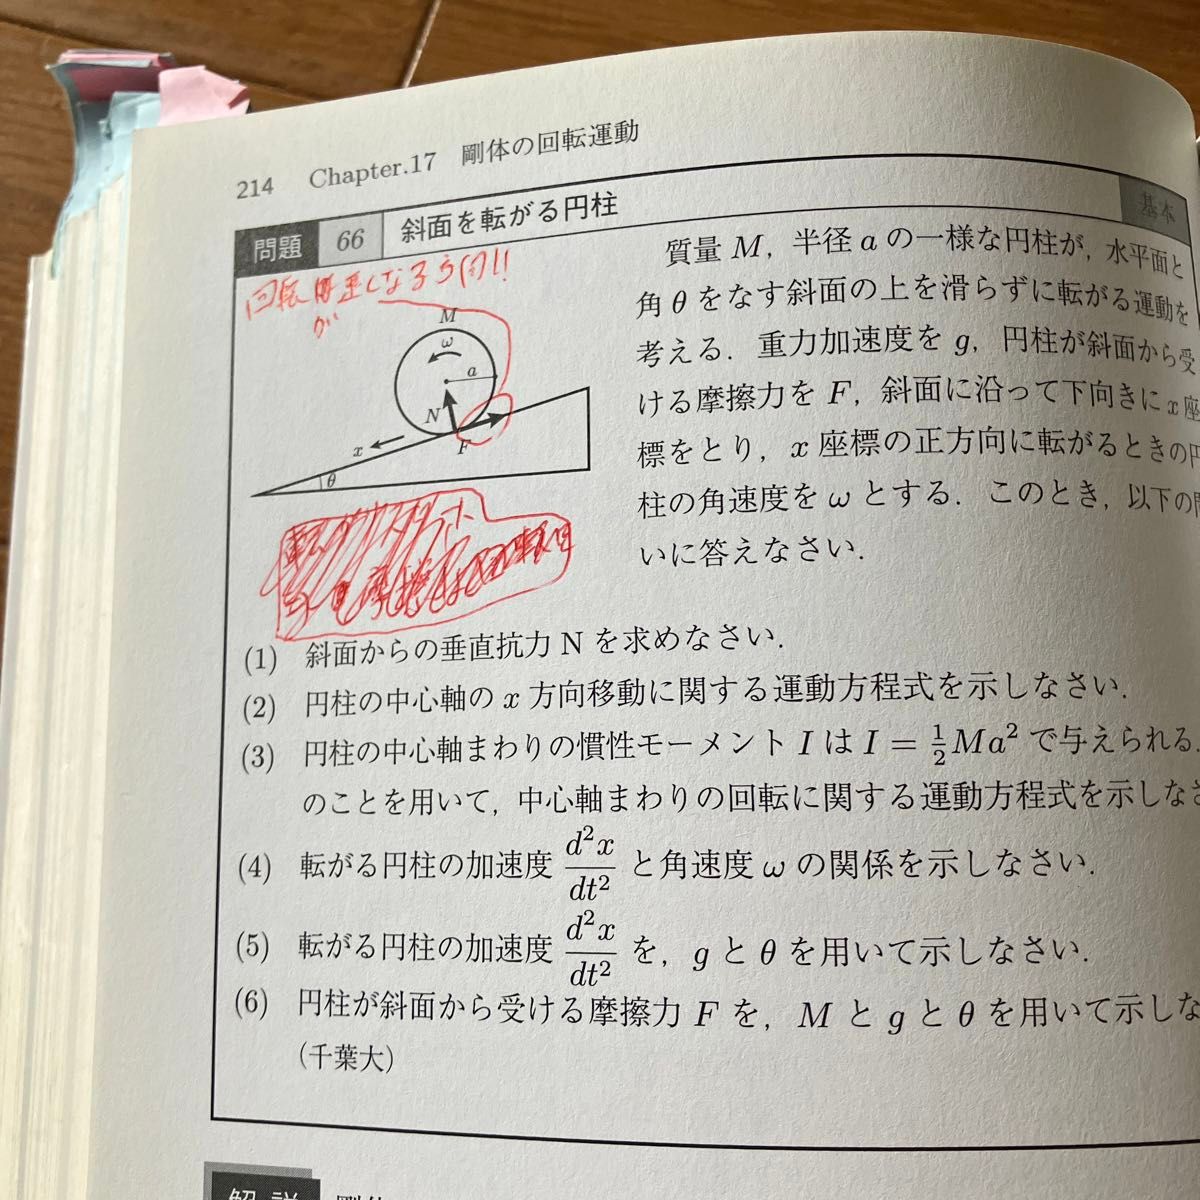 214 Chapter.17 剛体の回転運動
問題 66 斜面を転がる円柱 基本
回転が正しくなる方向!!
M
ω
a
N
F
x
θ
質量 M，半径 a の一様な円柱が，水平面と
角 θ をなす斜面の上を滑らずに転がる運動を
考える．重力加速度を g，円柱が斜面から受
ける摩擦力を F，斜面に沿って下向きに x 座
標をとり，x 座標の正方向に転がるときの円
柱の角速度を ω とする．このとき，以下の問
いに答えなさい．
(1) 斜面からの垂直抗力 N を求めなさい．
(2) 円柱の中心軸の x 方向移動に関する運動方程式を示しなさい．
(3) 円柱の中心軸まわりの慣性モーメント I は I = 1/2 Ma² で与えられる．
のことを用いて，中心軸まわりの回転に関する運動方程式を示しなさ
(4) 転がる円柱の加速度 d²x/dt² と角速度 ω の関係を示しなさい．
(5) 転がる円柱の加速度 d²x/dt² を，g と θ を用いて示しなさい．
(6) 円柱が斜面から受ける摩擦力 F を，M と g と θ を用いて示しな
(千葉大)
解説 剛体